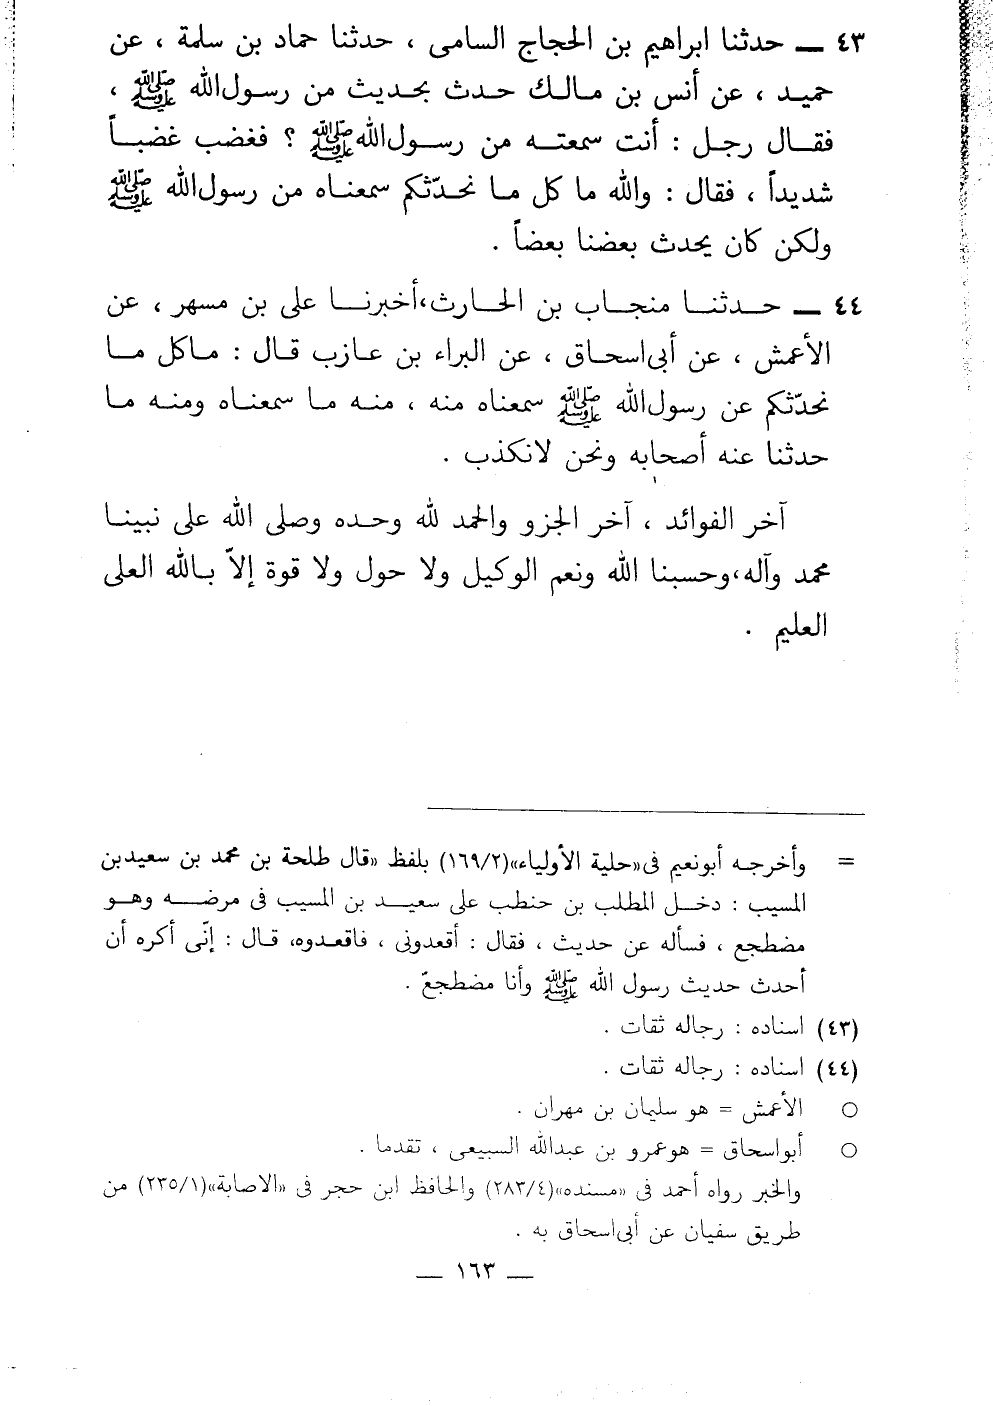 ٤٣ — حدثنا ابراهيم بن الحجاج السامى ، حدثنا حماد بن سلمة ، عن
حميد ، عن أنس بن مالك حدث بحديث من رسول الله ﷺ ،
فقال رجل : أنت سمعته من رسول الله ﷺ ؟ فغضب غضباً
شديداً ، فقال : والله ما كل ما نحدّثكم سمعناه من رسول الله ﷺ
ولكن كان يحدث بعضنا بعضاً .
٤٤ — حدثنا منجاب بن الحارث،أخبرنا على بن مسهر ، عن
الأعمش ، عن أبى اسحاق ، عن البراء بن عازب قال : ماكل ما
نحدّثكم عن رسول الله ﷺ سمعناه منه ، منه ما سمعناه ومنه ما
حدثنا عنه أصحابه ونحن لانكذب .
آخر الفوائد ، آخر الجزو والحمد لله وحده وصلى الله على نبينا
محمد وآله،وحسبنا الله ونعم الوكيل ولا حول ولا قوة إلاّ بالله العلى
العليم .
= وأخرجه أبونعيم فى«حلية الأولياء»(١٦٩/٢) بلفظ «قال طلحة بن محمد بن سعيدبن
المسيب : دخل المطلب بن حنطب على سعيد بن المسيب فى مرضه وهو
مضطجع ، فسأله عن حديث ، فقال : أقعدونى ، فاقعدوه، قال : إنّى أكره أن
أحدث حديث رسول الله ﷺ وأنا مضطجعّ .
(٤٣) اسناده : رجاله ثقات .
(٤٤) اسناده : رجاله ثقات .
○ الأعمش = هو سليمان بن مهران .
○ أبواسحاق = هوعمرو بن عبدالله السبيعى ، تقدما .
والخبر رواه أحمد فى «مسنده»(٢٨٣/٤) والحافظ ابن حجر فى «الاصابة»(٢٣٥/١) من
طريق سفيان عن أبى اسحاق به .
— ١٦٣ —